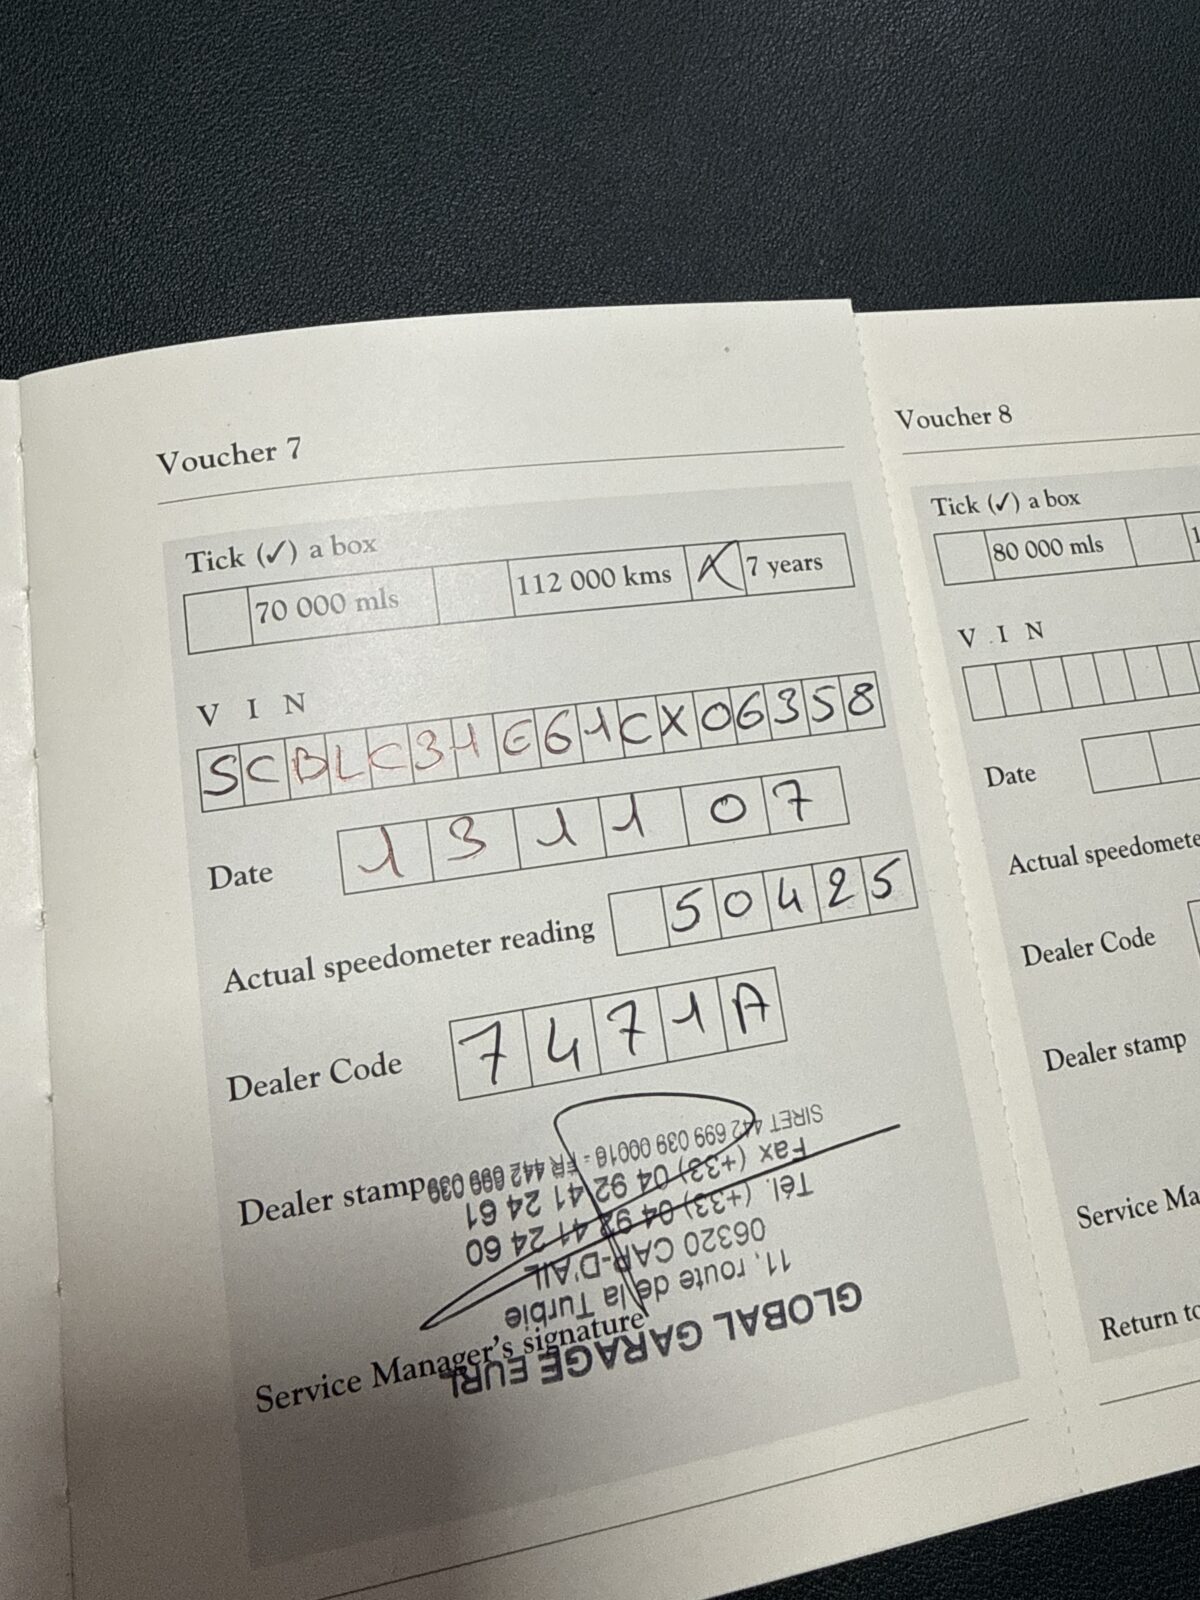 Voucher 7
Tick (✓) a box
70 000 mls
112 000 kms
X 7 years
V I N
SCBLC31E61CX06358
Date 131107
Actual speedometer reading 50425
Dealer Code 7471A
Dealer stamp
Service Manager's signature
GLOBAL GARAGE EURL
11, route de la Turbie
06320 CAP-D'AIL
Tél. (+33) 04 92 41 24 60
Fax (+33) 04 92 41 24 61
SIRET 442 699 039 00016 - FR 442 699 039
Voucher 8
Tick (✓) a box
80 000 mls
1
V I N
Date
Actual speedomete
Dealer Code
Dealer stamp
Service Ma
Return to